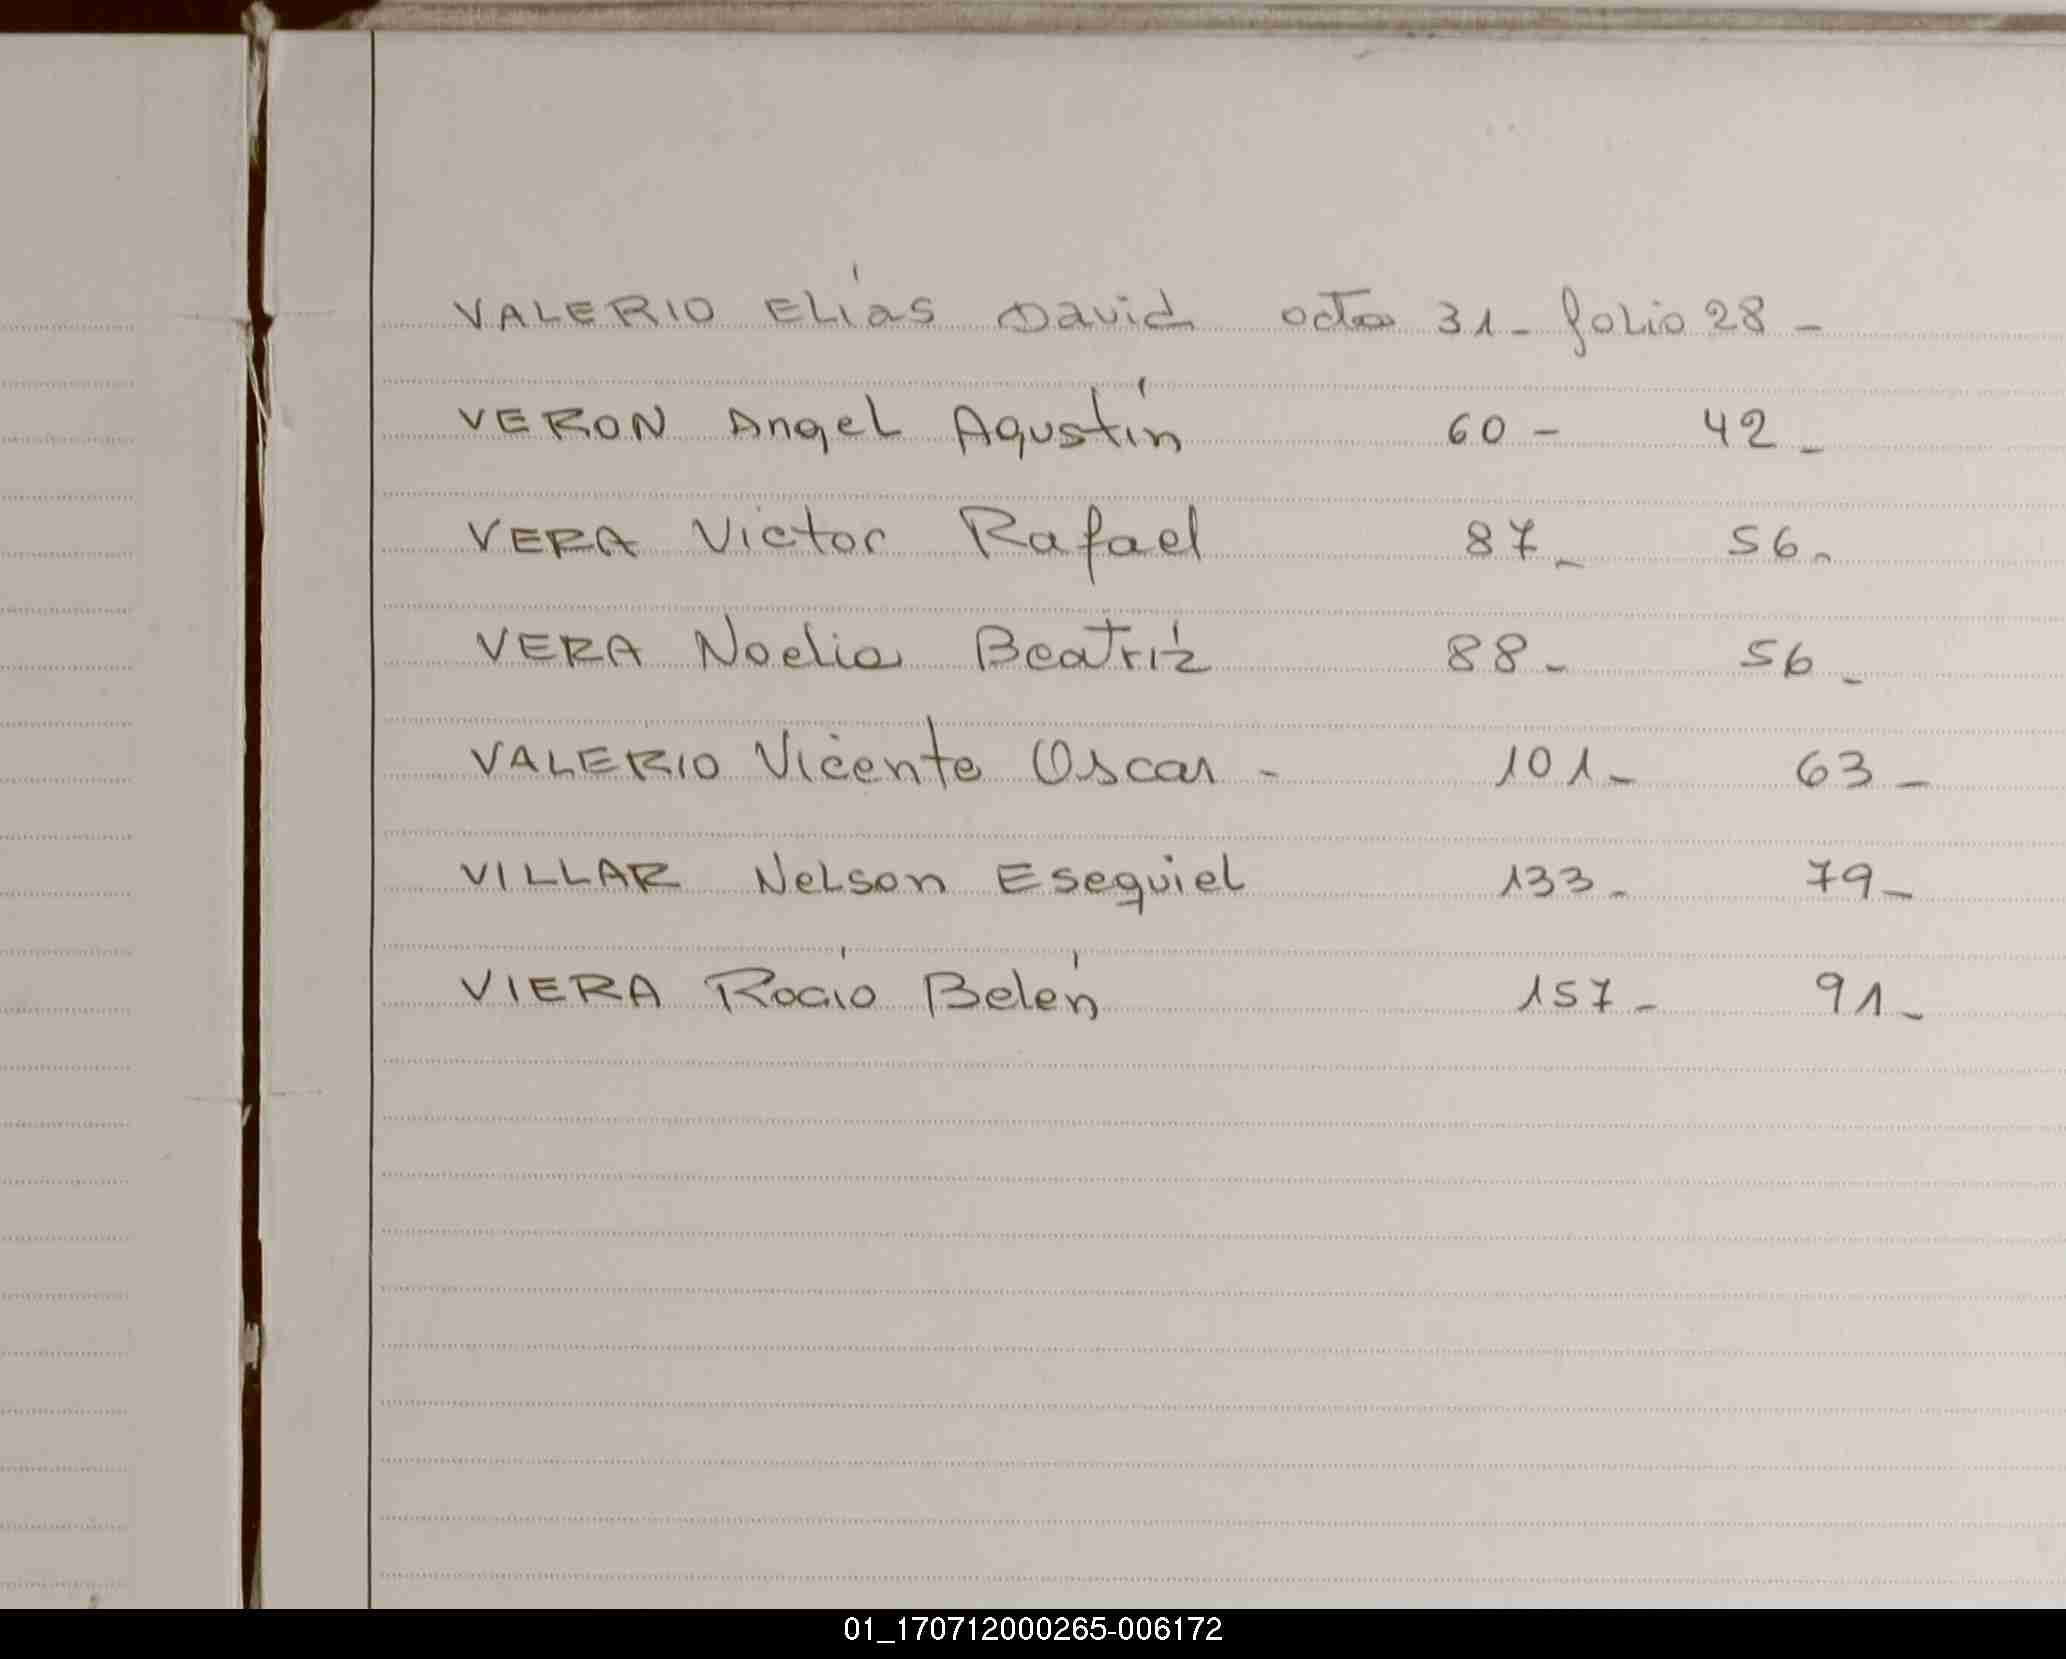 VALERIO Elías David acta 31 - folio 28 -
VERON Angel Agustín 60 - 42 -
VERA Victor Rafael 87 - 56 -
VERA Noelia Beatríz 88 - 56 -
VALERIO Vicente Oscar - 101 - 63 -
VILLAR Nelson Esequiel 133 - 79 -
VIERA Rocío Belén 157 - 91 -
01_170712000265-006172